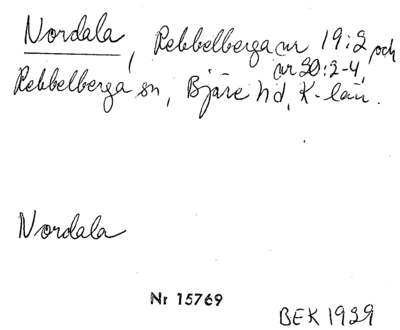 Nordala, Rebbelberga nr 19:2 och
nr 20:2-4,
Rebbelberga sn, Bjäre hd, K-län.
Nordala
Nr 15769
BEK 1929